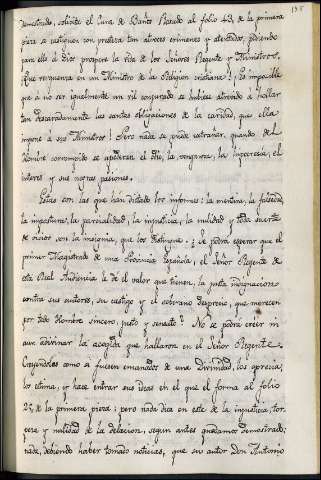 195
demostrado, solicite el Cura de Santo Rosendo al folio 43, de la primera
pieza se castiguen con presteza tan atroces crimenes y atentados, pidiendo
para ello á Dios prospere la vida de los Señores Regente y Ministros,
¡Que verguenza en un Ministro de la Religion cristiana! ¡Es imposible
que á no ser igualmente un vil conjurado se hubiese atrevido á hollar
tan descaradamente las santas obligaciones de la caridad, que ella
impone á sus Ministros! Pero nada se puede extrañar, quando del
hombre conmovido se apoderan el odio, la venganza, la hipocresia, el
interes y sus negras pasiones.
Estas son las que han dictado los informes: la mentira, la falsedad,
la impostura, la parcialidad, la injusticia, la nulidad y toda suerte
de vicios son la maxima, que los distingue. ¿Se podra esperar que el
primer Magistrado de una Provincia Española, el Señor Regente de
esta Real Audiencia le dé el valor que tienen, la justa indignacion
contra sus autores, su castigo y el soberano desprecio, que merecen
por todo Hombre sincero, justo y sensato? No se podra creer ni
aun adivinar la acogida que hallaron en el Señor Regente.
Creyendolos como si fuesen emanados de una Divinidad, los aprecia,
los estima, y hace entrar sus ideas en el que el forma al folio
25, de la primera pieza; pero nada dice en este de la injusticia, tor
peza y nulidad de la delacion, segun antes quedamos demostrado;
nada, debiendo haber tomado noticias, que su autor Don Antonio